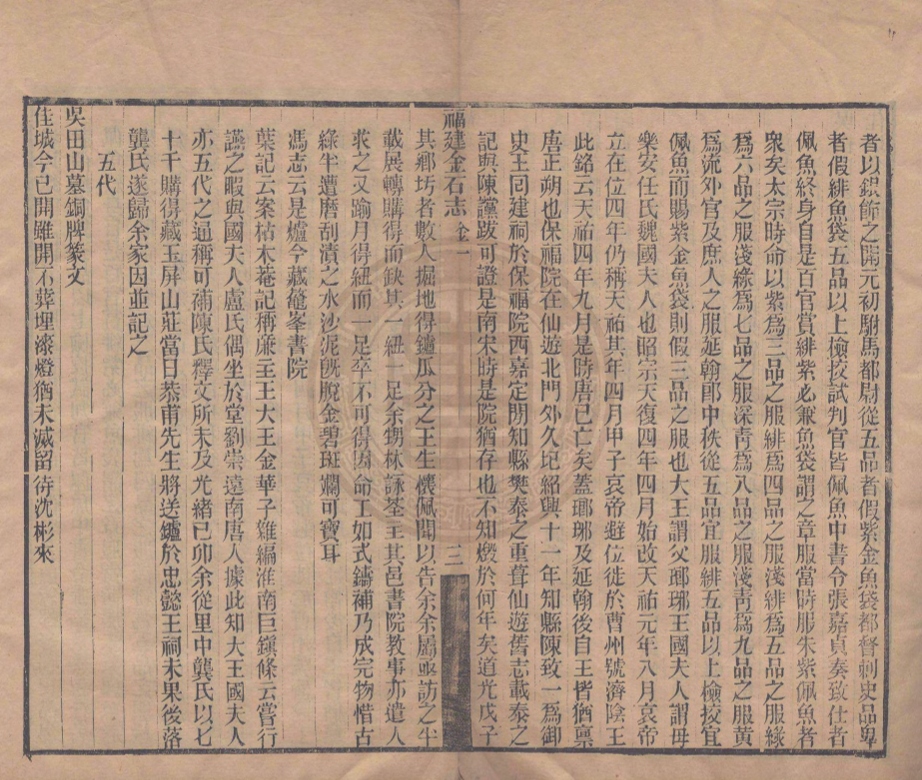 者以銀飾之開元初駙馬都尉從五品者假紫金魚袋都督刺史品卑
者假緋魚袋五品以上檢挍試判官皆佩魚中書令張嘉貞奏致仕者
佩魚終身自是百官賞緋紫必兼魚袋謂之章服當時服朱紫佩魚者
衆矣太宗時命以紫爲三品之服緋爲四品之服淺緋爲五品之服綠
爲六品之服淺綠爲七品之服深靑爲八品之服淺靑爲九品之服黃
爲流外官及庶人之服延翰郎中秩從五品宜服緋五品以上檢挍宜
佩魚而賜紫金魚袋則假三品之服也大王謂父瑯琊王國夫人謂母
樂安任氏魏國夫人也昭宗天復四年四月始改天祐元年八月哀帝
立在位四年仍稱天祐其年四月甲子哀帝遜位徙於曹州號濟陰王
此銘云天祐四年九月是時唐已亡矣蓋瑯琊及延翰後自王皆猶稟
唐正朔也保福院在仙遊北門外久圮紹興十一年知縣陳致一爲御
史王回建祠於保福院西嘉定閒知縣樊泰之重葺仙遊舊志載泰之
記與陳讜跋可證是南宋時是院猶存也不知燬於何年矣道光戊子
福建金石志 金一 三
其鄕坊者數人掘地得鑪瓜分之王生懷佩聞以告余余屬亟訪之半
載展轉購得而缺其一紐一足余甥林詠荃主其邑書院敎事亦遣人
求之又踰月得紐而一足卒不可得因命工如式鑄補乃成完物惜古
綠半遭磨刮漬之水沙泥旣脫金碧斑斕可寶耳
馮志云是爐今藏鼇峯書院
葉記云案枯木菴記稱廉主王大王金華子雜編淮南巨鎭條云嘗行
讌之暇與國夫人盧氏偶坐於堂劉崇遠南唐人據此知大王國夫人
亦五代之通稱可補陳氏釋文所未及光緒己卯余從里中龔氏以七
十千購得藏玉屏山莊當日恭甫先生將送鑪於忠懿王祠未果後落
龔氏遂歸余家因並記之
五代
吳田山墓銅牌篆文
佳城今已開雖開不葬埋漆燈猶未滅留待沈彬來